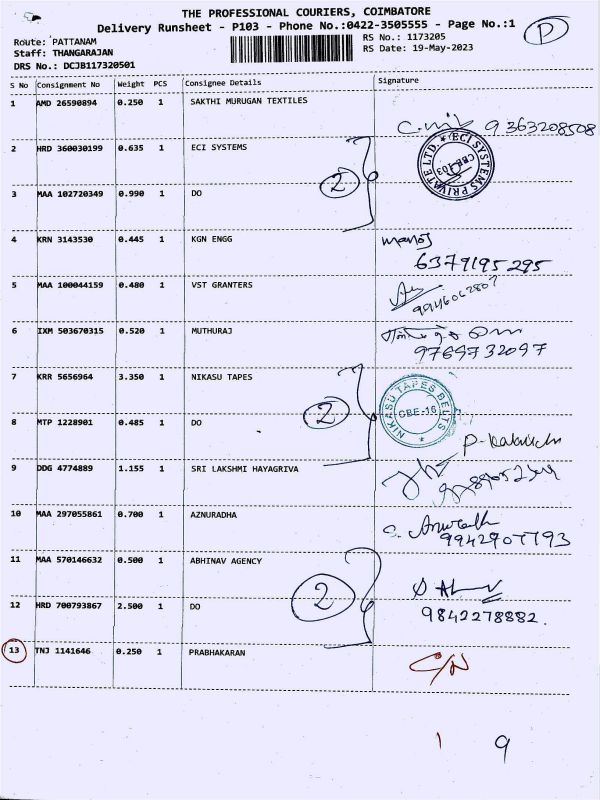 THE PROFESSIONAL COURIERS, COIMBATORE
Delivery Runsheet - P103 - Phone No.:0422-3505555 - Page No.:1
P
Route: PATTANAM
RS No.: 1173205
Staff: THANGARAJAN
RS Date: 19-May-2023
DRS No.: DCJB117320501
S No Consignment No Weight PCS Consignee Details Signature
1 AMD 26590894 0.250 1 SAKTHI MURUGAN TEXTILES
9363208508
2 HRD 360030199 0.635 1 ECI SYSTEMS
2
ECI SYSTEMS PRIVATE LTD. CBE-103
3 MAA 102720349 0.990 1 DO
4 KRN 3143530 0.445 1 KGN ENGG manoj
6379195295
5 MAA 100044159 0.480 1 VST GRANTERS
9946062807
6 IXM 503670315 0.520 1 MUTHURAJ
9769732097
7 KRR 5656964 3.350 1 NIKASU TAPES
2
NIKASU TAPES BELTS CBE-16
8 MTP 1228901 0.485 1 DO
9 DDG 4774889 1.155 1 SRI LAKSHMI HAYAGRIVA
10 MAA 297055861 0.700 1 AZNURADHA
9942907793
11 MAA 570146632 0.500 1 ABHINAV AGENCY
2
12 HRD 700793867 2.500 1 DO
9842278882.
13 TNJ 1141646 0.250 1 PRABHAKARAN C/N
1 9